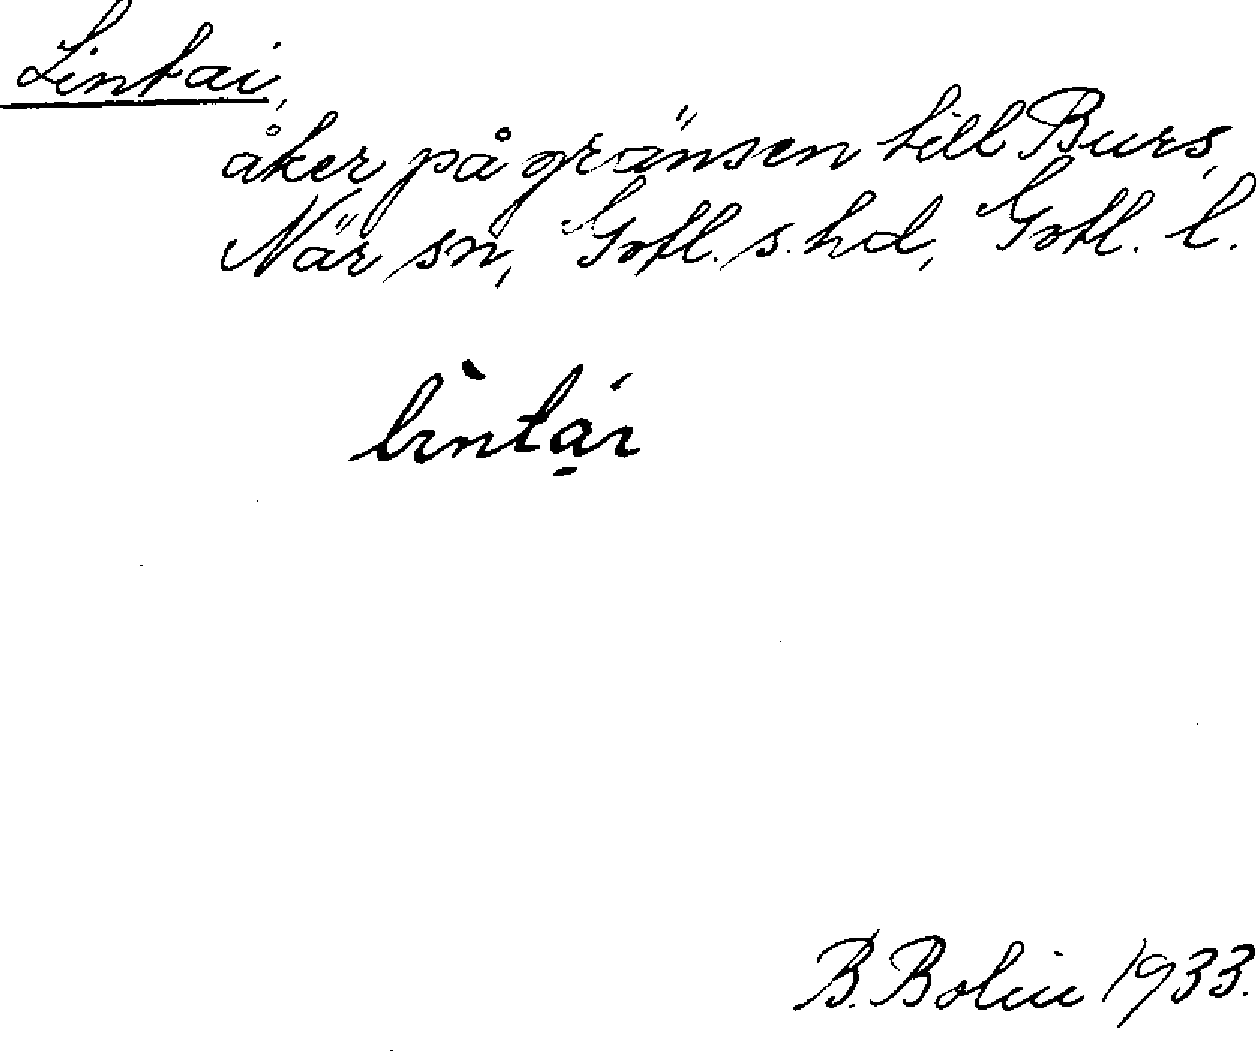 Lintai,
åker på gränsen till Burs,
När sn, Gotl. s. hd, Gotl. l.
lìnta̱i
B. Bolin 1933.